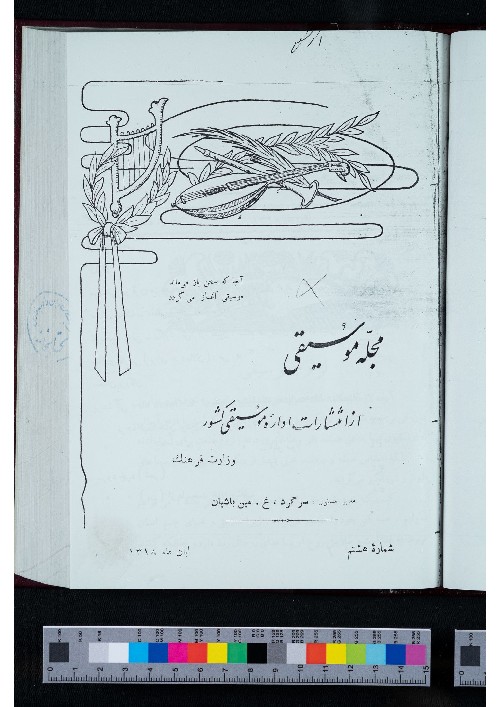 آنجا که سخن باز می‌ماند
موسیقی آغاز می گردد
مجلّه موسیقی
از انتشارات ادارهٔ موسیقی کشور
وزارت فرهنگ
سرگرد . غ . مین باشیان
شمارهٔ هشتم
آبان ماه ۱۳۱۸
0 1 2 3 4 5 6 7 8 9 10 11 12 13 14 15